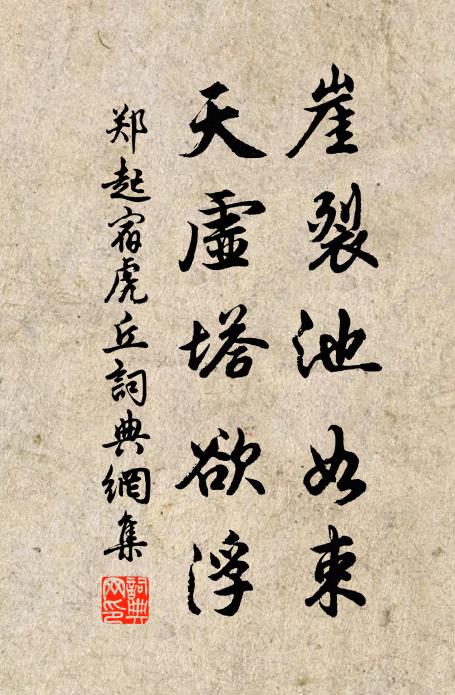 崖裂池如束
天虛塔欲浮
郑起宿虎丘詞典網集
詞典
网印